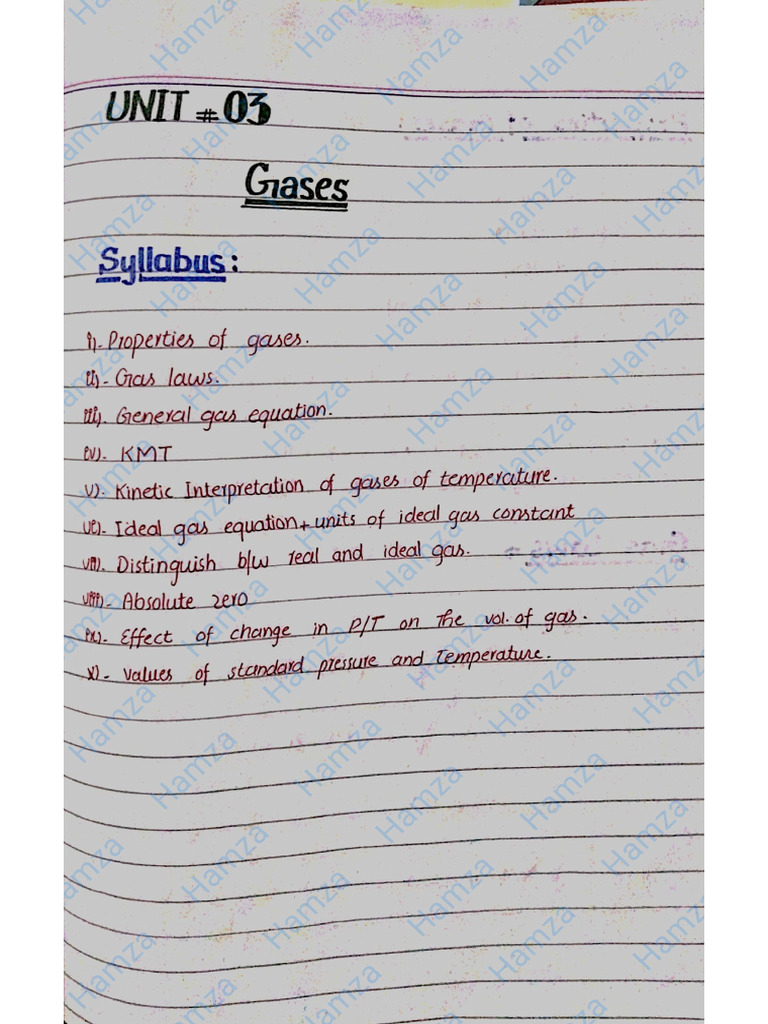 UNIT # 03
Gases
Syllabus:
i). Properties of gases.
ii)- Gas laws.
iii). General gas equation.
iv). KMT
v). Kinetic Interpretation of gases of temperature.
vi). Ideal gas equation + units of ideal gas constant
vii). Distinguish b/w real and ideal gas.
viii)- Absolute zero
ix). Effect of change in P/T on the vol. of gas.
x)- values of standard pressure and Temperature.
Hamza